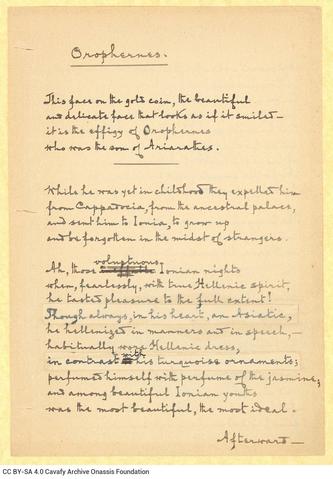 Orophernes.
This face on the gold coin, the beautiful
and delicate face that looks as if it smiled—
it is the effigy of Orophernes
who was the son of Ariarathes.
While he was yet in childhood they expelled him
from Cappadocia, from the ancestral palace,
and sent him to Ionia, to grow up
and be forgotten in the midst of strangers.
voluptuous,
Ah, those Ionian nights
when, fearlessly, with true Hellenic spirit,
he tasted pleasure to the full extent!
Though always, in his heart, an Asiatic,
he hellenized in manners and in speech,—
habitually wore Hellenic dress,
with
in contrast his turquoise ornaments;
perfumed himself with perfume of the jasmine;
and among beautiful Ionian youths
was the most beautiful, the most ideal.
Afterward—
CC BY-SA 4.0 Cavafy Archive Onassis Foundation